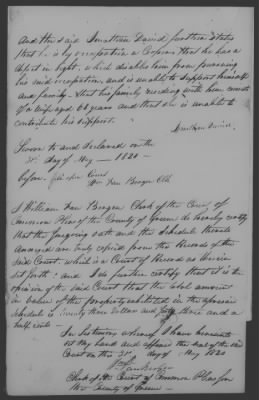 And the said Jonathan David further States
that he is by occupation a Cooper that he has a
defect in sight, which disables him from pursuing
his said occupation, and is unable to support himself
and family. That his family residing with him consists
of a wife aged 61 years and that she is unable to
contribute to his support.
Jonathan David
Sworn to and declared on the
day of May — 1820 —
before in open Court
Wm Van Bergen Clk
I William Van Bergen Clerk of the Court of
Common Pleas of the County of Greene do hereby certify
that the foregoing oath and the Schedule thereto
annexed are truly copied from the Records of the
said Court, which is a Court of Record as herein
set forth. And I do further certify that it is the
opinion of the said Court that the total amount
in value of the property exhibited in the aforesaid
Schedule is twenty three Dollars and forty three and a
half cents.
In testimony whereof I have hereunto
set my hand and affixed the seal of the said
Court on the day of May 1820
Van Bergen
Clerk of the Court of Common Pleas for
the County of Greene